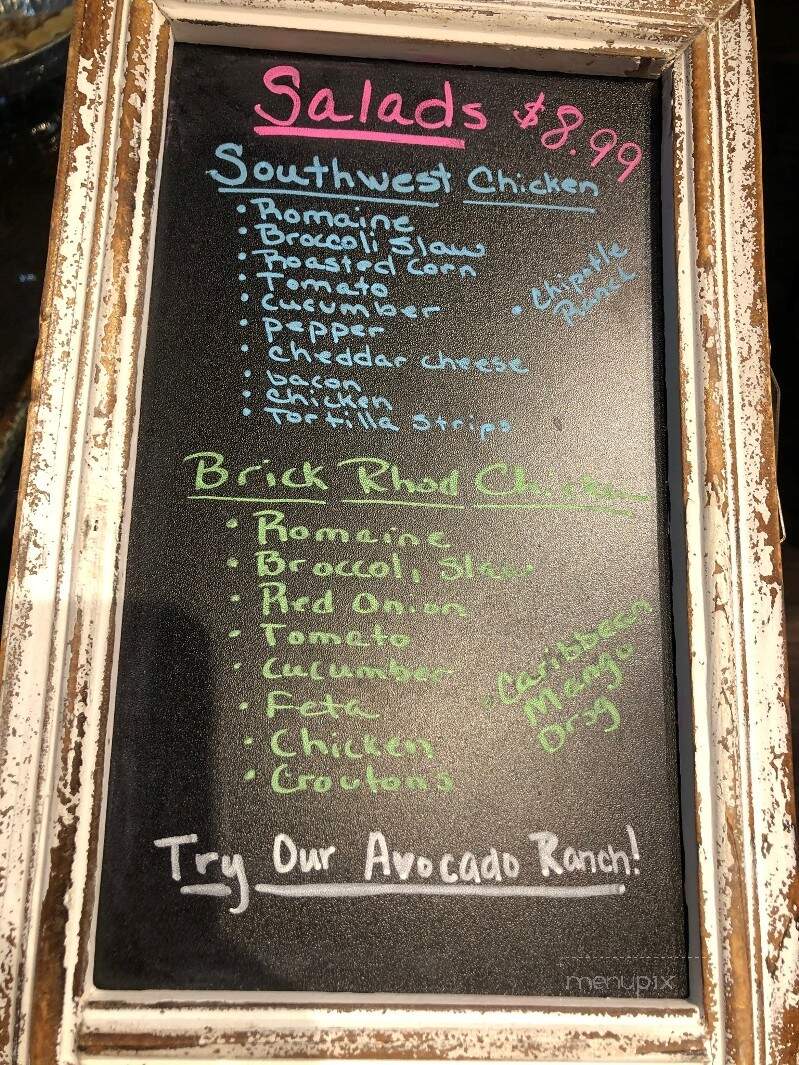 Salads $8.99
Southwest Chicken
• Romaine
• Broccoli Slaw
• Roasted Corn
• Tomato
• Cucumber
• pepper
• cheddar cheese
• bacon
• Chicken
• Tortilla Strips
• Chipotle
Ranch
Brick Rhod Chicken
• Romaine
• Broccoli Slaw
• Red Onion
• Tomato
• Cucumber
• Feta
• Chicken
• Croutons
• Caribbean
Mango
Drsg
Try Our Avocado Ranch!
menupix